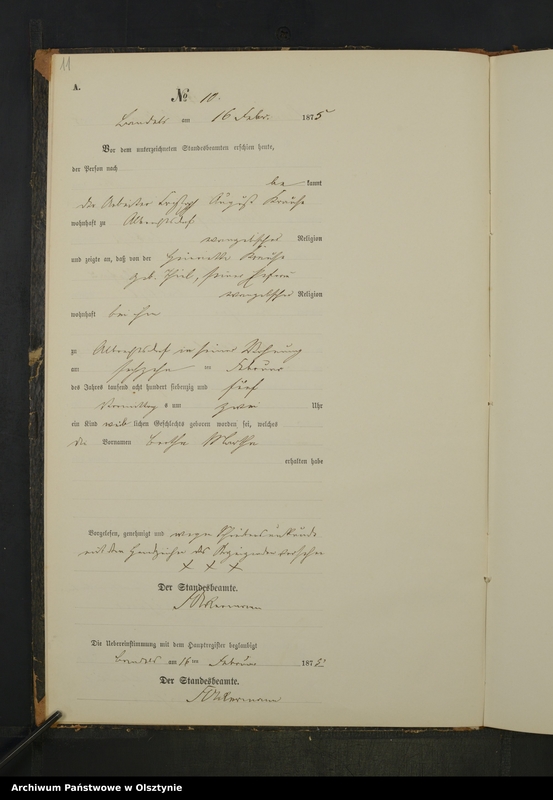 11
A.
№ 10.
Bandels am 16 Febr. 1875
Vor dem unterzeichneten Standesbeamten erschien heute,
der Person nach
be kannt
der Arbeiter August Krause
wohnhaft zu Albrechtsdorf
evangelischer Religion
und zeigte an, daß von der Henriette Krause
geb. Thiel, seiner Ehefrau
evangelischer Religion
wohnhaft bei ihm
zu Albrechtsdorf in seiner Wohnung
am sechzehn ten Februar
des Jahres tausend acht hundert siebenzig und fünf
Vormittags um zwei Uhr
ein Kind weib lichen Geschlechts geboren worden sei, welches
die Vornamen Bertha Martha
erhalten habe
Vorgelesen, genehmigt und wegen Schreibensunkunde
mit dem Handzeichen des Anzeigenden versehen
+ + +
Der Standesbeamte.
Die Uebereinstimmung mit dem Hauptregister beglaubigt
Bandels am 16ten Februar 1875
Der Standesbeamte.
Archiwum Państwowe w Olsztynie